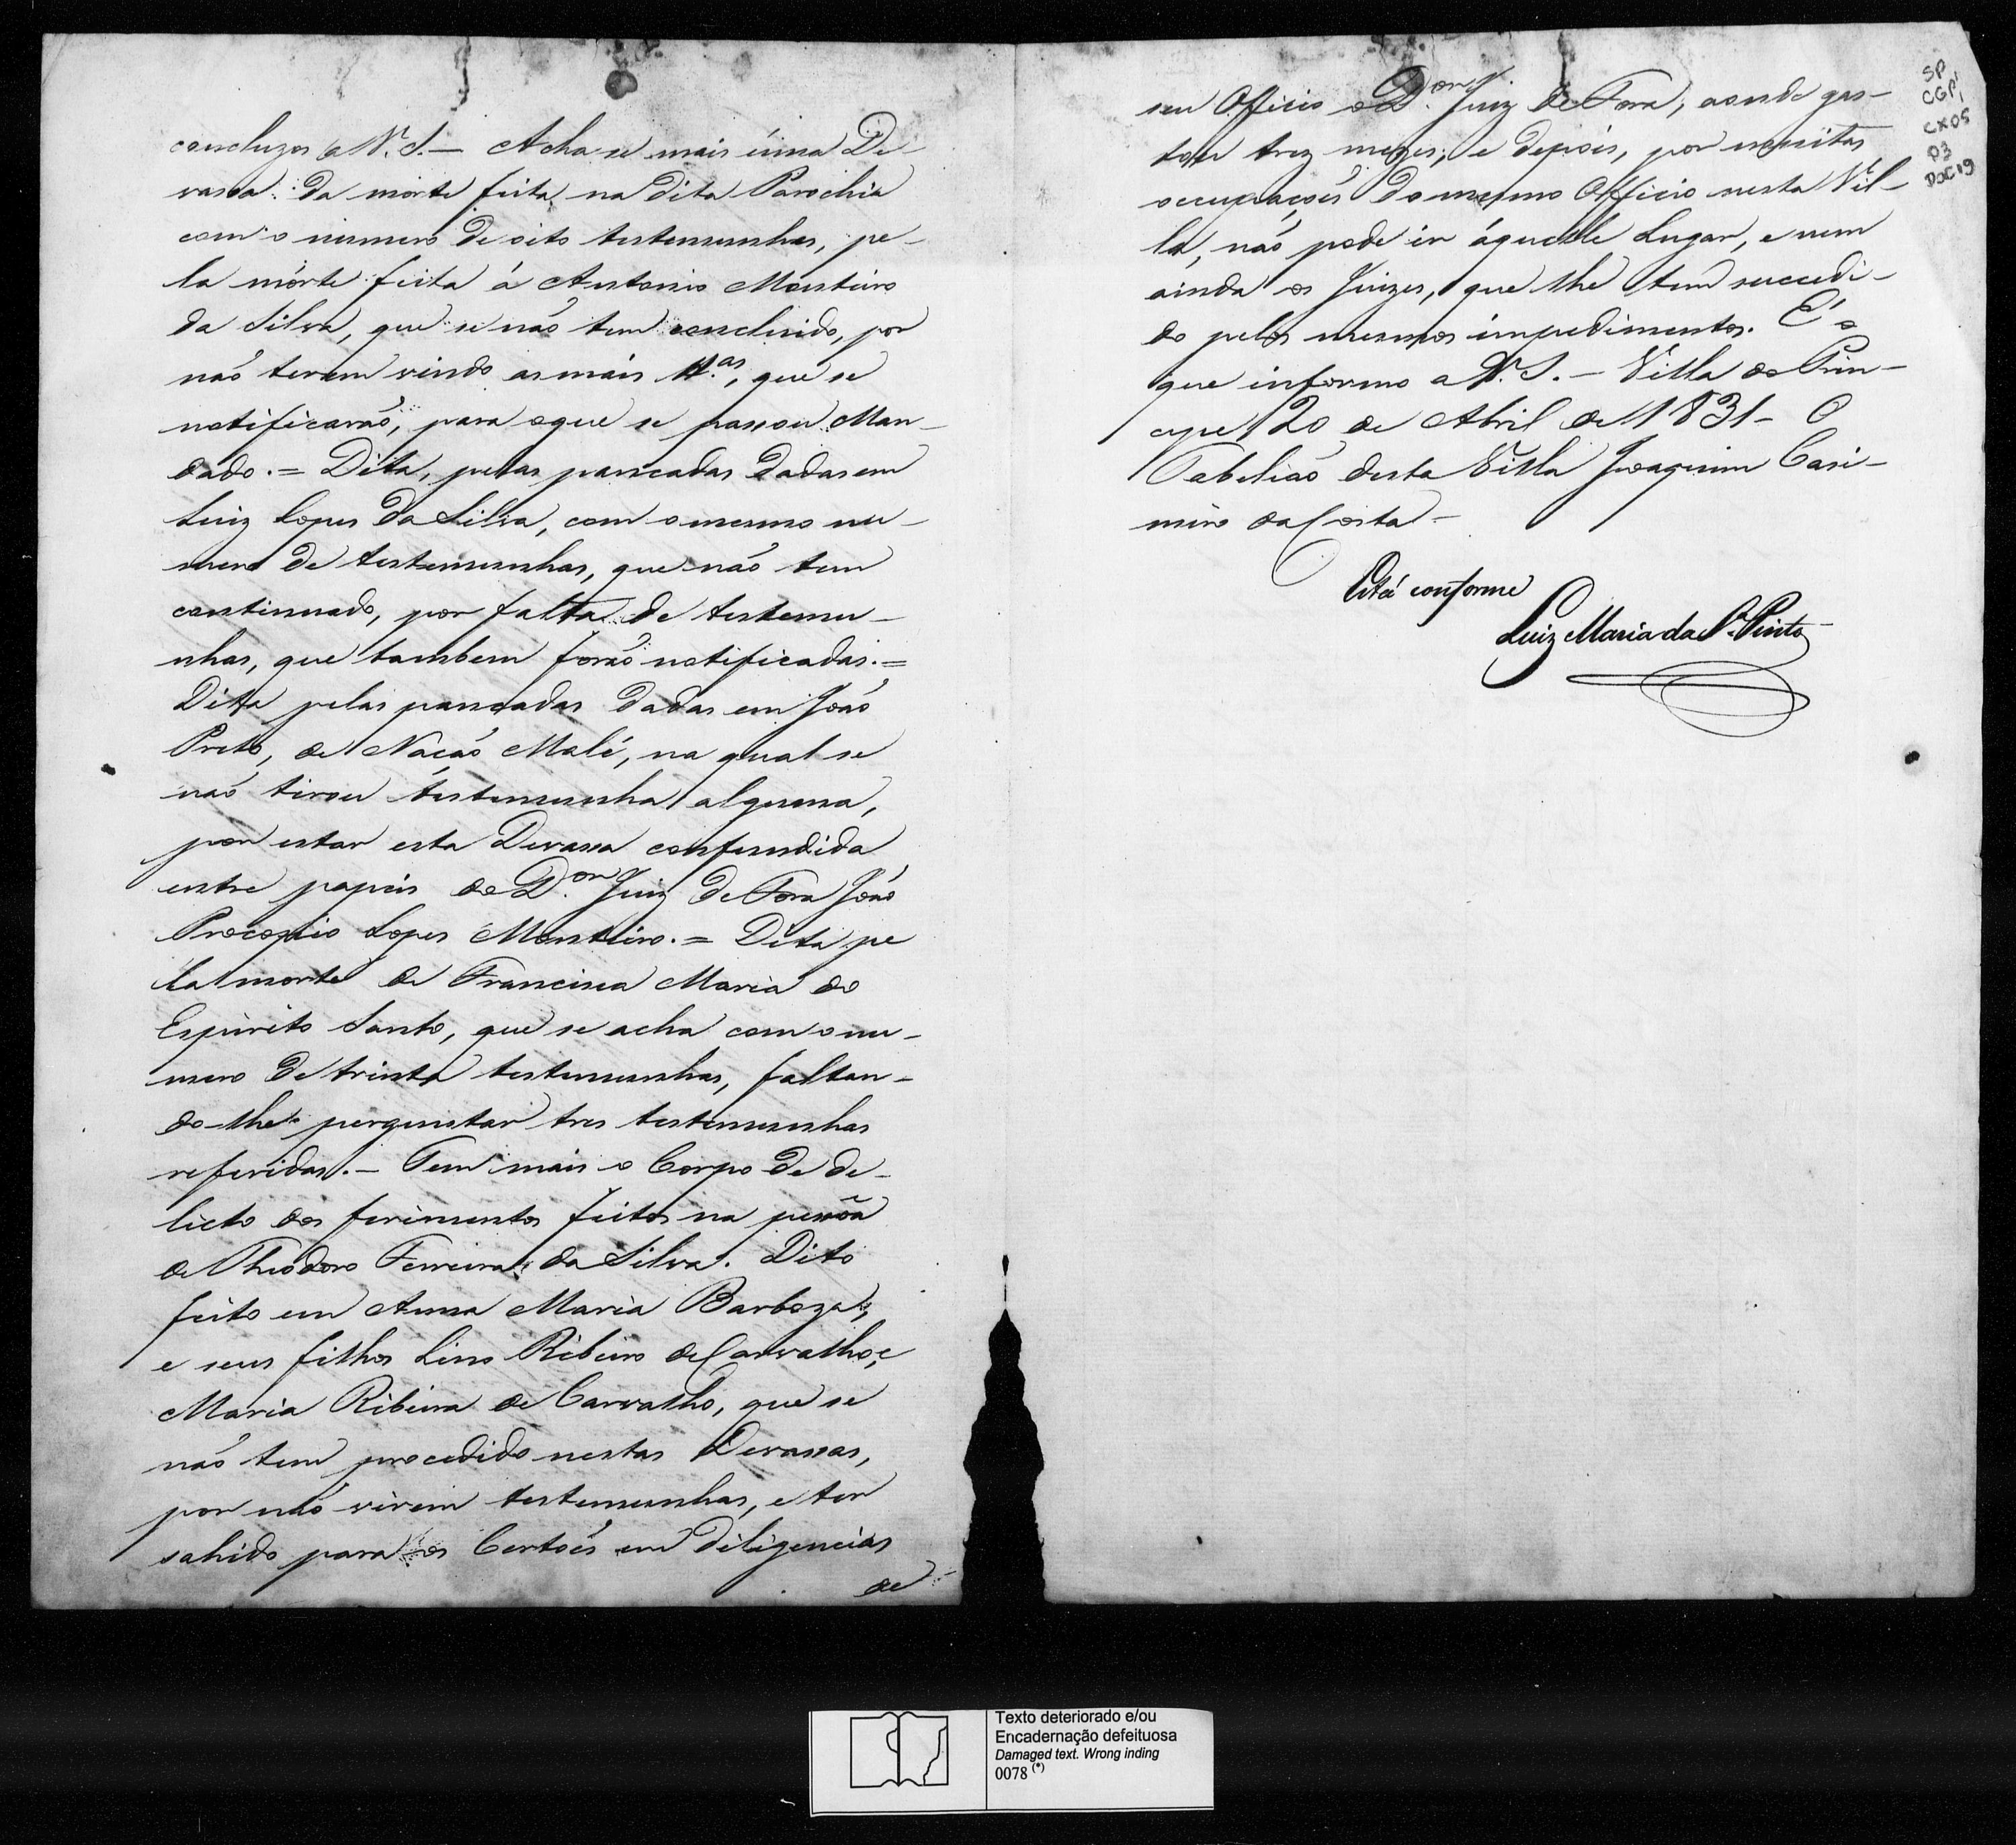 concluzos a V. S. — Acha-se mais úma De-
vassa da morte feita na dita Parochia
com o numero de oito testemunhas, pe-
la mórte feita á Antonio Monteiro
da Silva, que se não tem concluido, por
não terem vindo as mais tt.as, que se
notificarão, para o que se passou Man-
dado. = Dita, pelas pancadas dadas em
Luiz Lopes da Silva, com o mesmo nu-
mero de testemunhas, que não tem
continuado, por falta de testemu-
nhas, que tambem forão notificadas. =
Dita pelas pancadas dadas em João
Preto, de Nação Malé, na qual se
não tirou testemunha alguma,
por estar esta Devassa confundida
entre papeis do D.or Juiz de Fora João
Procopio Lopes Monteiro. = Dita pe
la morte de Francisca Maria do
Espirito Santo, que se acha com o nu-
mero de trinta testemunhas, faltan-
do-lhe perguntar tres testemunhas
referidas. — Tem mais o Corpo de de-
licto dos ferimentos feitos na pessõa
de Theodoro Ferreira da Silva. Dito
feito em Anna Maria Barboza,
e seus filhos Lino Ribeiro de Carvalho, e
Maria Ribeira de Carvalho, que se
não tem procedido nestas Devassas,
por não virem testemunhas, e ter
sahido para os Certões em diligencias
de
seu Officio o D.or Juiz de Fora, aonde gas-
tou trez mezes; e depois, por muitas
occupações do mesmo Officio nesta Vil-
la, não pode ir áquelle Lugar, e nem
ainda os Juizes, que lhe tem succedi-
do pelos mesmos impedimentos. É o
que informo a V. S. — Villa do Prin-
cipe 20 de Abril de 1831 — O
Tabelião desta Villa Joaquim Casi-
miro da Costa —
Está conforme
Luiz Maria da S.a Pinto
SP
CGP1
CX05
P3
DOC19
Texto deteriorado e/ou
Encadernação defeituosa
Damaged text. Wrong inding
0078 (*)